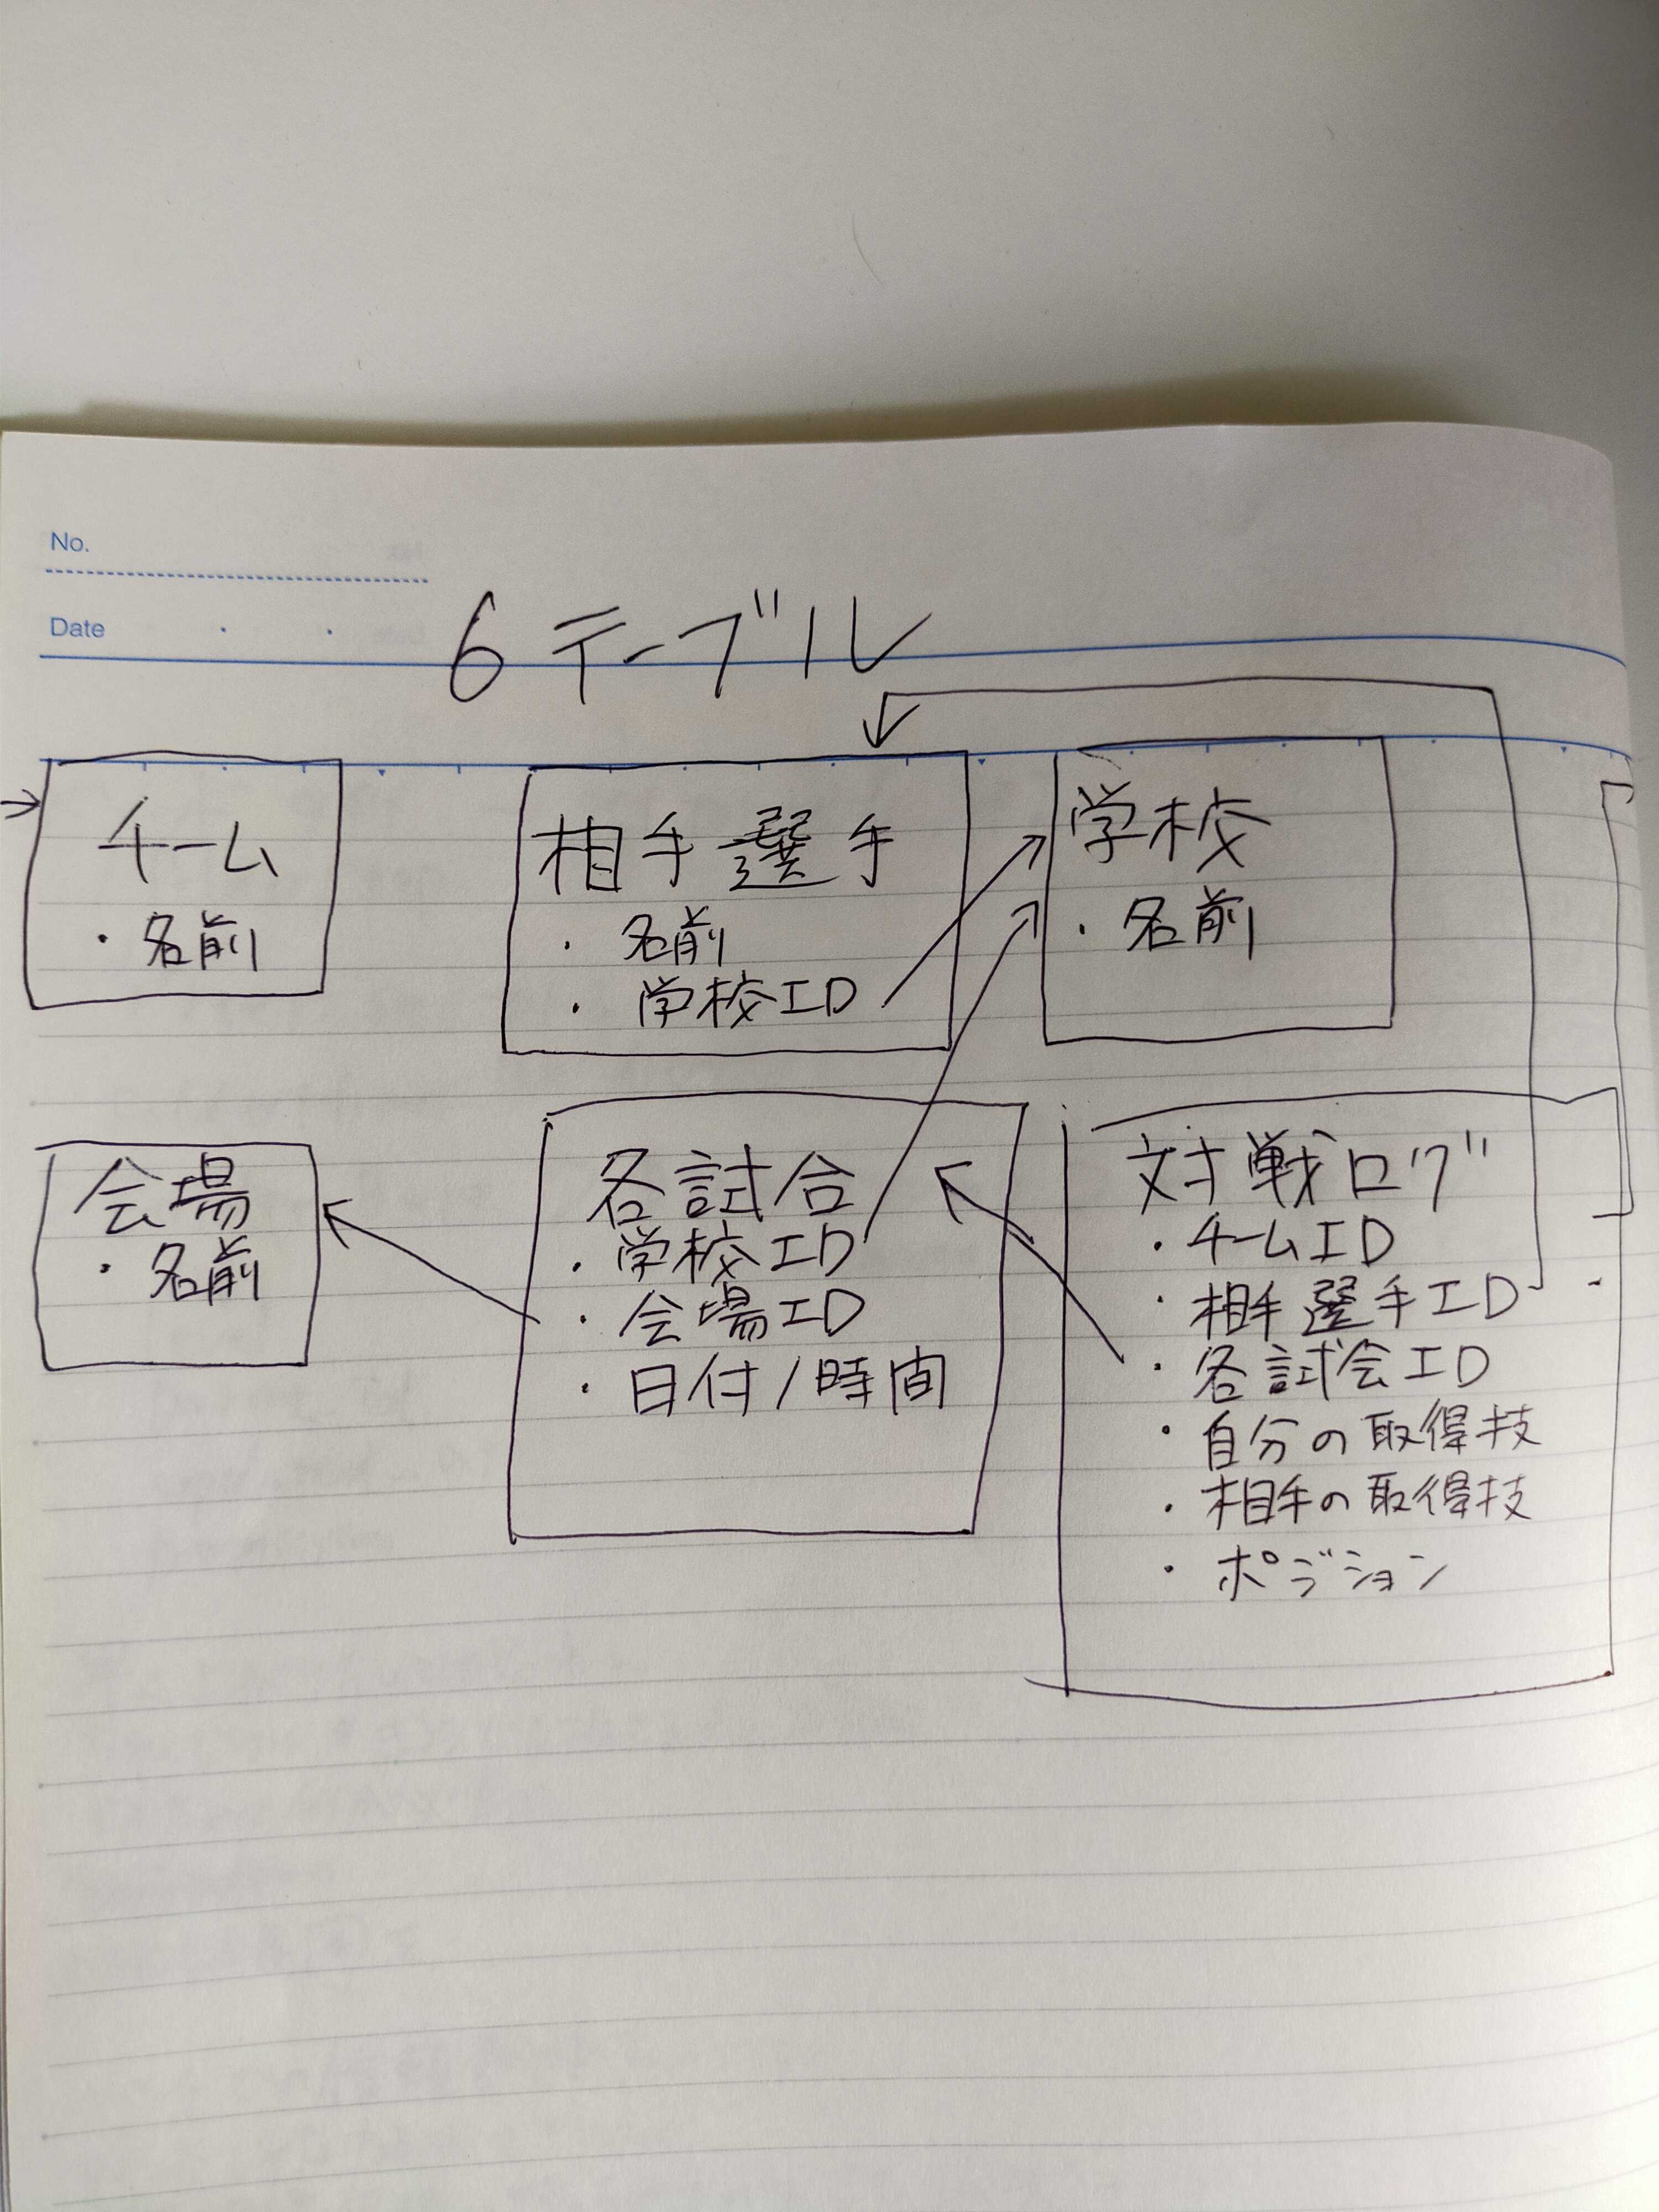 No.
Date
6テーブル
チーム
・名前
相手選手
・名前
・学校ID
学校
・名前
会場
・名前
各試合
・学校ID
・会場ID
・日付/時間
対戦ログ
・チームID
・相手選手ID
・各試会ID
・自分の取得技
・相手の取得技
・ポジション